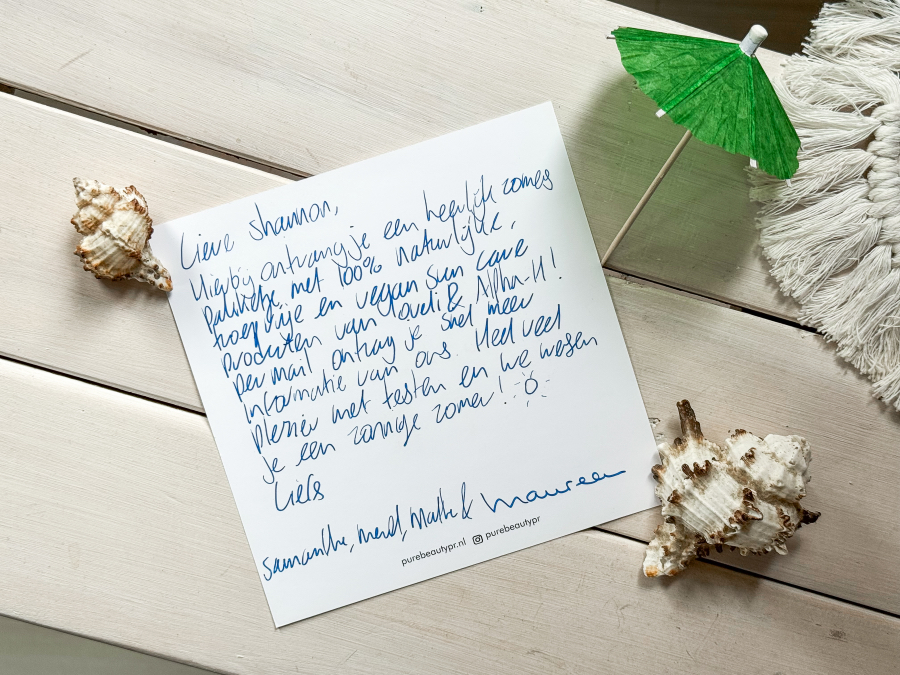 Lieve Shannon,
Hierbij ontvang je een heerlijk zomers
pakketje met 100% natuurlijke,
troep vrije en vegan sun care
producten van Ovedi & Alpha-H!
Per mail ontvang je snel meer
informatie van ons. Heel veel
plezier met testen en we wensen
je een zonnige zomer!
Liefs
Samantha, Merel, &  Maureen
purebeautypr.nl purebeautypr